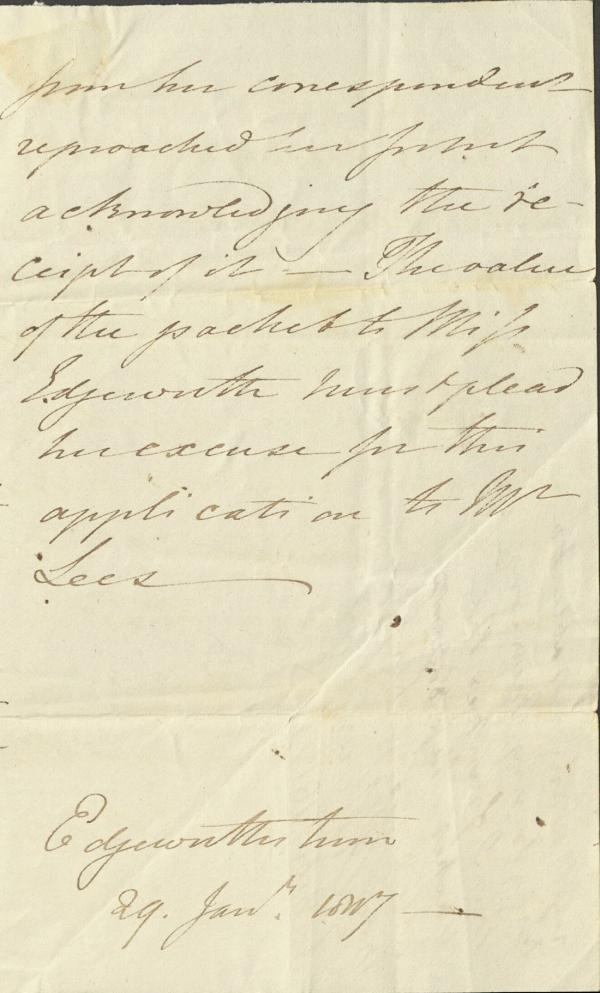 from her correspondent
reproached her for not
acknowledging the re-
ceipt of it — The value
of the packet to Miss
Edgeworth must plead
her excuse for this
application to Mr
Lees —
Edgeworthstown
29. Janr. 1817 —